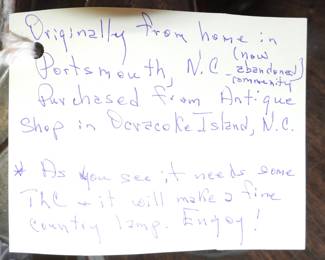 Originally from home in
Portsmouth, N.C. (now abandoned) community
Purchased from Antique
Shop in Ocracoke Island, N.C.
* As you see it needs some
TLC & it will make a fine
country lamp. Enjoy!